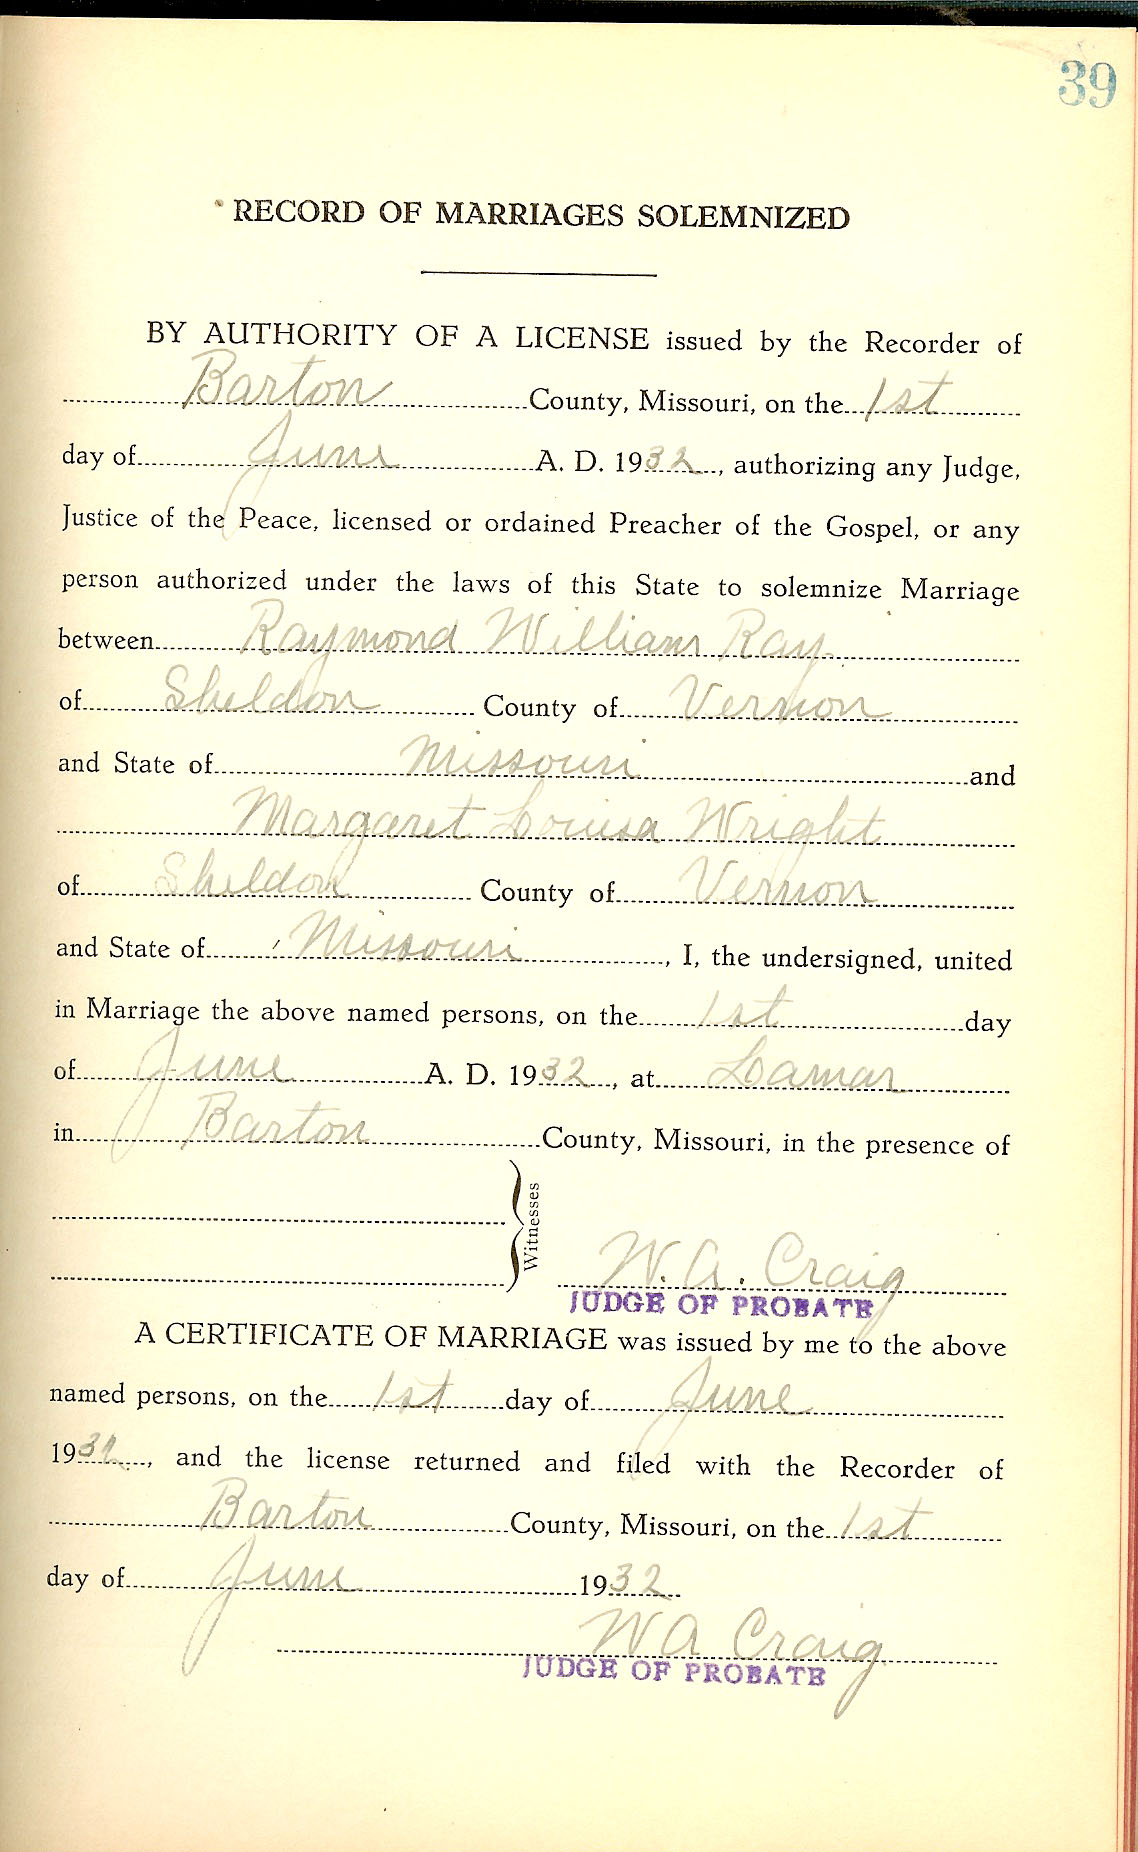 39
RECORD OF MARRIAGES SOLEMNIZED
BY AUTHORITY OF A LICENSE issued by the Recorder of
Barton County, Missouri, on the 1st
day of June A. D. 1932, authorizing any Judge,
Justice of the Peace, licensed or ordained Preacher of the Gospel, or any
person authorized under the laws of this State to solemnize Marriage
between Raymond William Ray
of Sheldon County of Vernon
and State of Missouri and
Margaret Louisa Wright
of Sheldon County of Vernon
and State of Missouri, I, the undersigned, united
in Marriage the above named persons, on the 1st day
of June A. D. 1932, at Lamar
in Barton County, Missouri, in the presence of
Witnesses
W. A. Craig
JUDGE OF PROBATE
A CERTIFICATE OF MARRIAGE was issued by me to the above
named persons, on the 1st day of June
1932, and the license returned and filed with the Recorder of
Barton County, Missouri, on the 1st
day of June 1932
W A Craig
JUDGE OF PROBATE